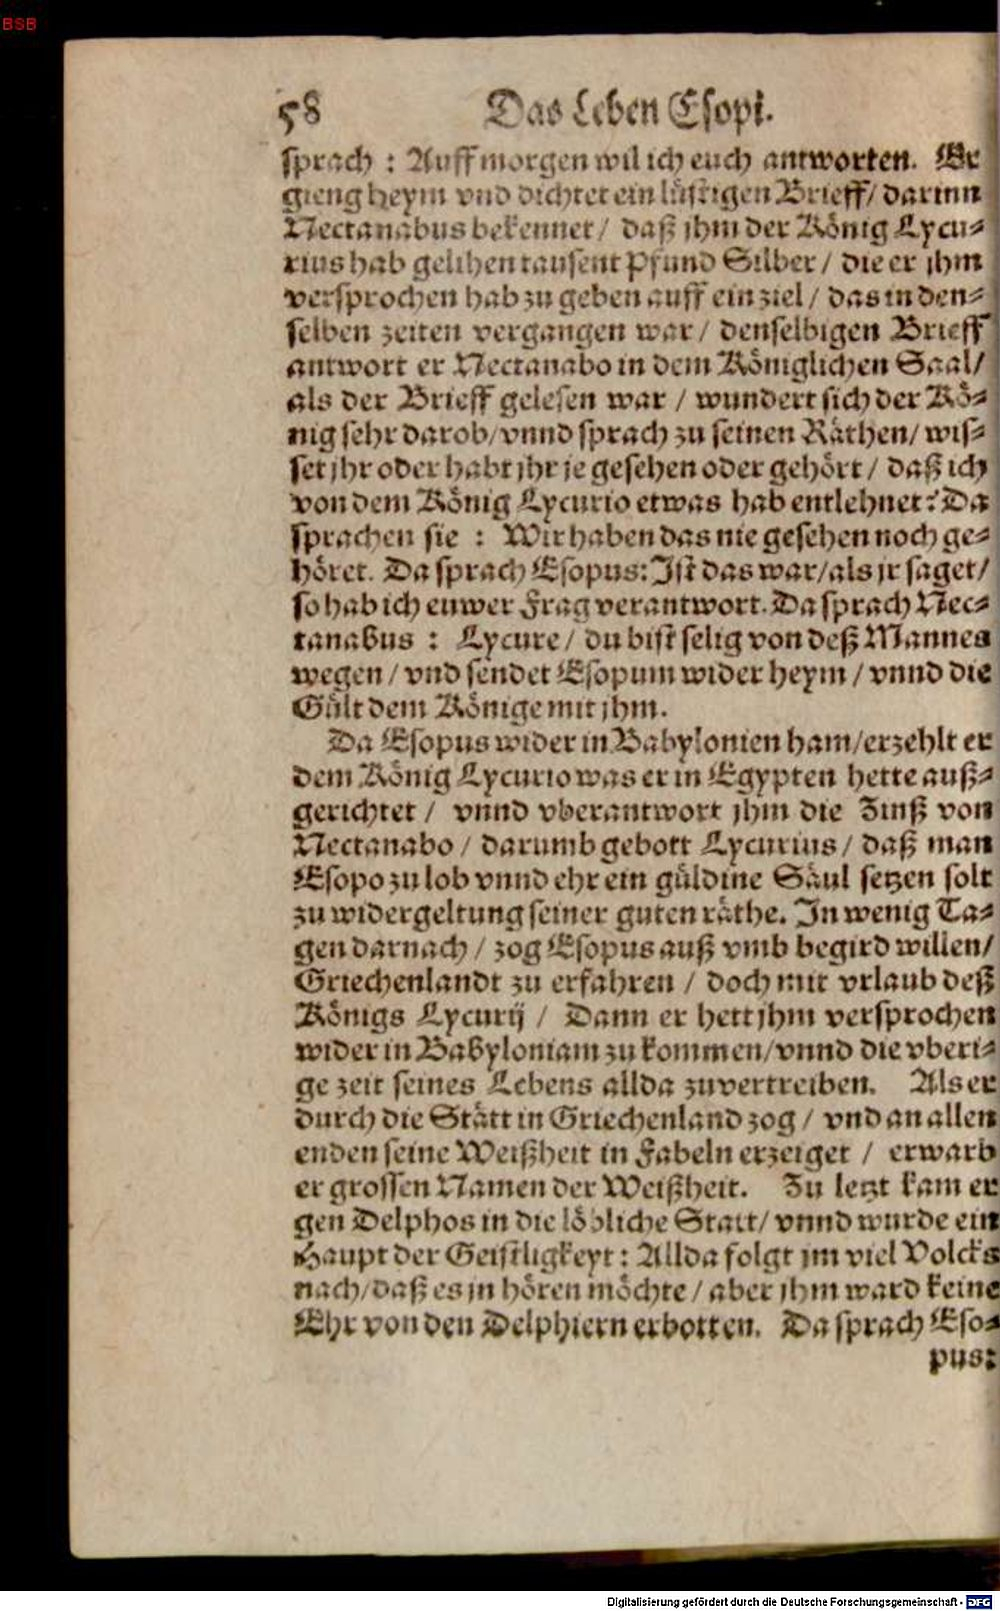 BSB
58 Das Leben Esopi.
sprach : Auff morgen wil ich euch antworten. Er
gieng heym vnd dichtet ein lüstigen Brieff/ darinn
Nectanabus bekennet/ daß jhm der König Lycu⸗
rius hab gelihen tausent Pfund Silber/ die er jhm
versprochen hab zu geben auff ein ziel/ das in den⸗
selben zeiten vergangen war/ denselbigen Brieff
antwort er Nectanabo in dem Königlichen Saal/
als der Brieff gelesen war / wundert sich der Kö⸗
nig sehr darob/ vnnd sprach zu seinen Räthen/ wis⸗
set jhr oder habt jhr je gesehen oder gehört/ daß ich
von dem König Lycurio etwas hab entlehnet? Da
sprachen sie : Wir haben das nie gesehen noch ge⸗
höret. Da sprach Esopus: Ist das war/ als jr saget/
so hab ich euwer Frag verantwort. Da sprach Nec⸗
tanabus : Lycure/ du bist selig von deß Mannes
wegen/ vnd sendet Esopum wider heym/ vnnd die
Gült dem Könige mit jhm.
Da Esopus wider in Babylonien ham/ erzehlt er
dem König Lycurio was er in Egypten hette auß⸗
gerichtet / vnnd vberantwort jhm die Zinß von
Nectanabo / darumb gebott Lycurius/ daß man
Esopo zu lob vnnd ehr ein güldine Säul setzen solt
zu widergeltung seiner guten räthe. In wenig Ta⸗
gen darnach/ zog Esopus auß vmb begird willen/
Griechenlandt zu erfahren / doch mit vrlaub deß
Königs Lycurij / Dann er hett jhm versprochen
wider in Babyloniam zu kommen/ vnnd die vberi⸗
ge zeit seines Lebens allda zuvertreiben. Als er
durch die Stätt in Griechenland zog/ vnd an allen
enden seine Weißheit in Fabeln erzeiget / erwarb
er grossen Namen der Weißheit. Zu letzt kam er
gen Delphos in die löbliche Statt/ vnnd wurde ein
Haupt der Geistligkeyt: Allda folgt jm viel Volcks
nach/ daß es jn hören möchte/ aber jhm ward keine
Ehr von den Delphiern erbotten. Da sprach Eso⸗
pus:
Digitalisierung gefördert durch die Deutsche Forschungsgemeinschaft - DFG